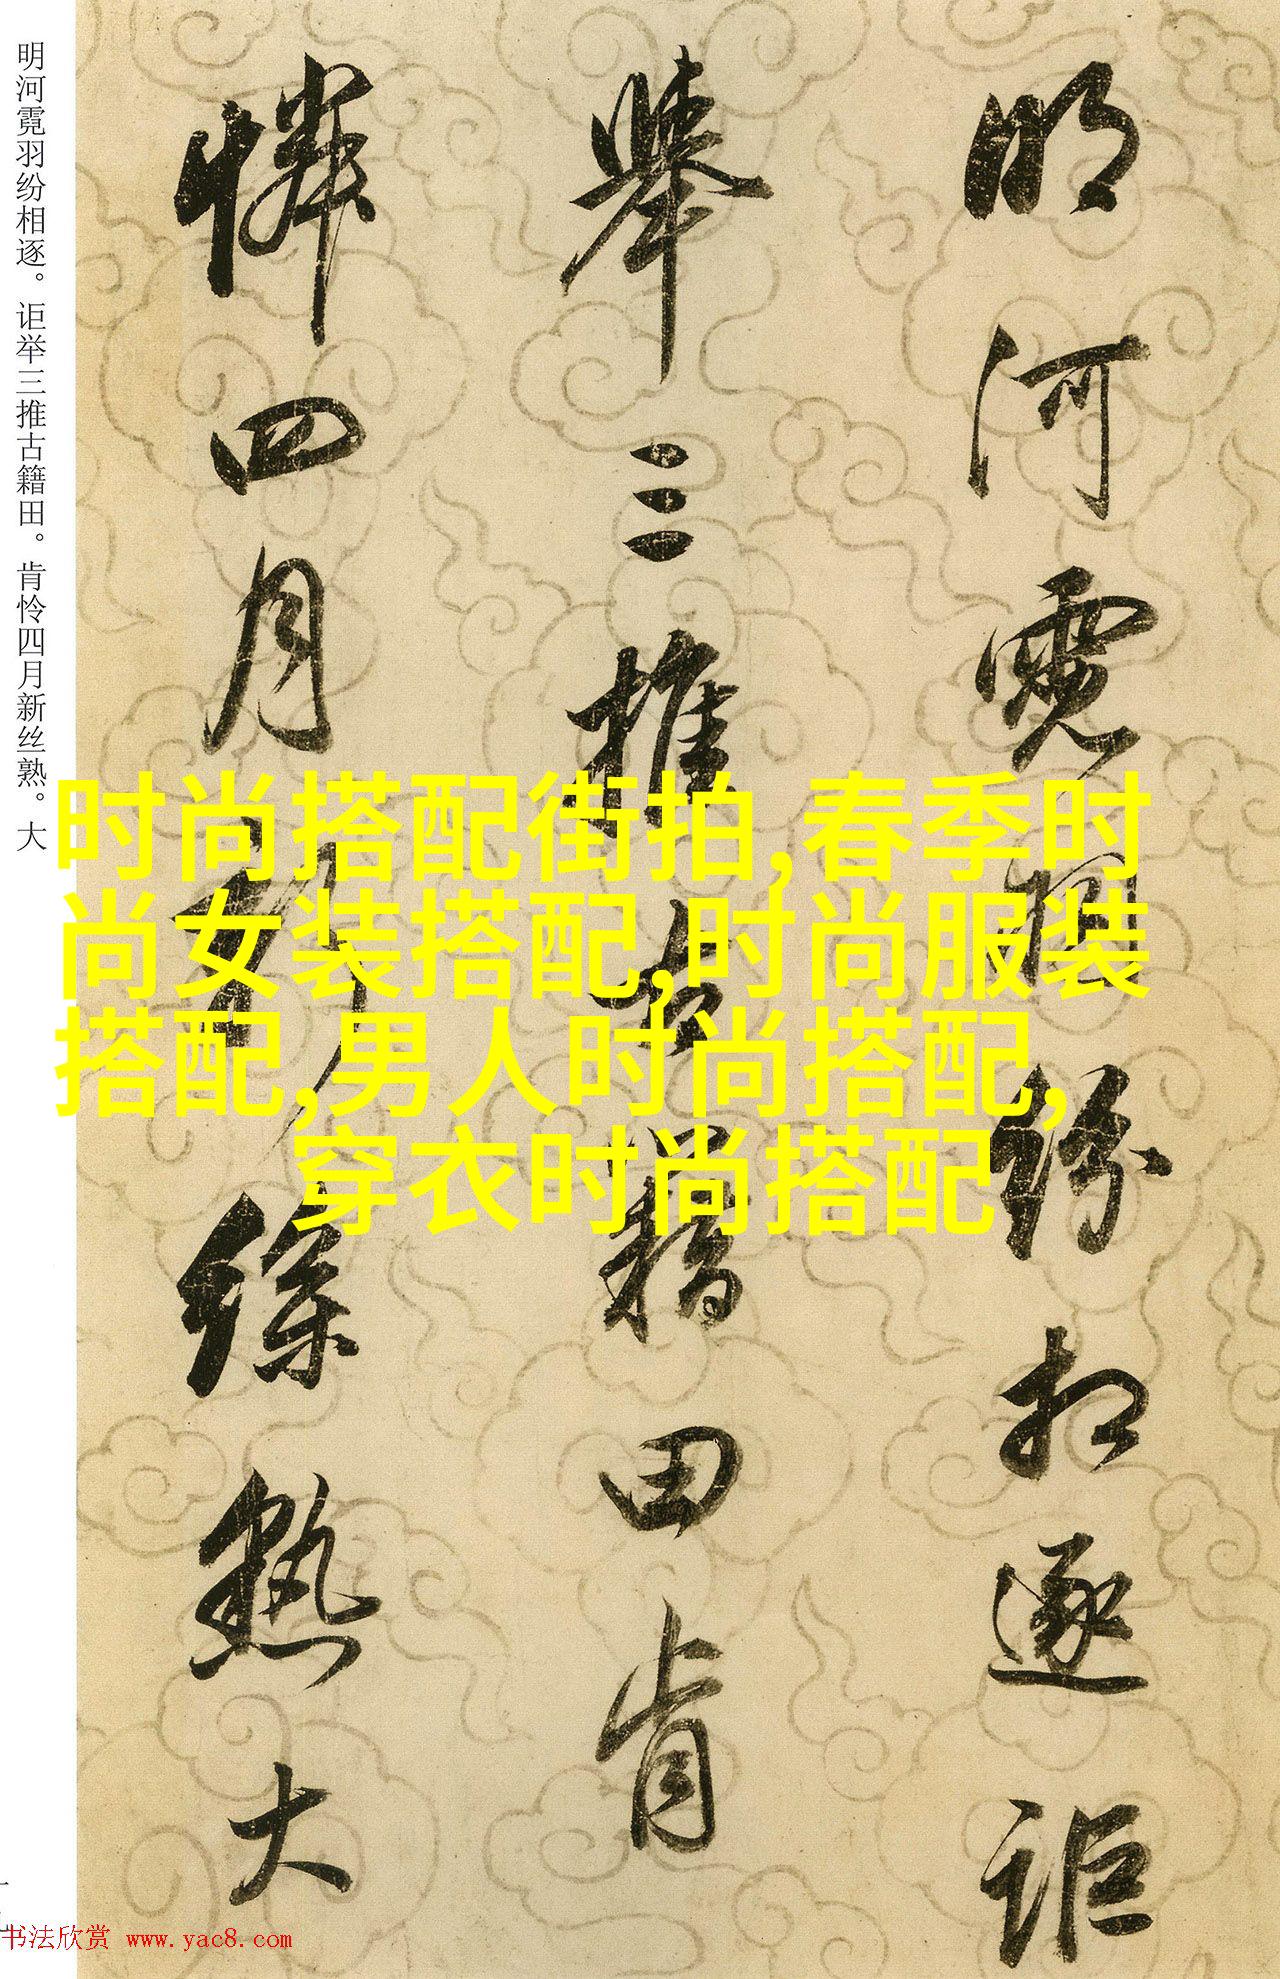 明河霓羽紛相逐詎
舉三推古籍田肯
憐四月新絲熟大
明河霓羽纷相逐。讵举三推古籍田。肯怜四月新丝熟。大
时尚搭配街拍,春季时
尚女装搭配,时尚服装
搭配,男人时尚搭配,
穿衣时尚搭配
书法欣赏 www.yac8.com